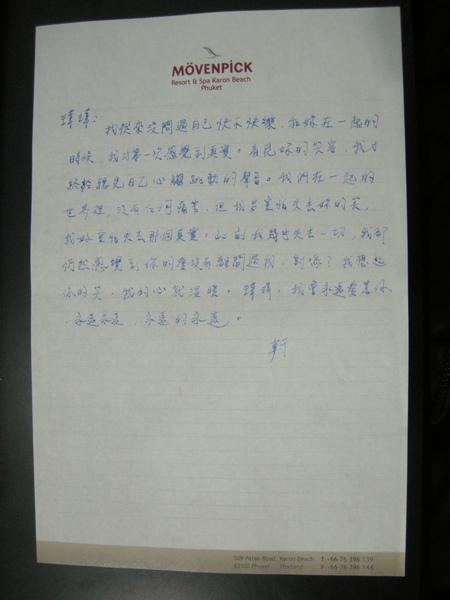 MÖVENPICK
Resort & Spa Karon Beach
Phuket
瑋瑋:
我從來沒問過自己快不快樂，和妳在一起的
時候，我才第一次感覺到真實。看見妳的笑容，我才
終於聽見自己心臟跳動的聲音。我們在一起的
世界裡，沒有任何痛苦，但我好害怕失去妳的笑，
我好害怕失去那個真實。此刻我幾乎失去一切，我卻
仍然感覺到你的愛沒有離開過我，別忘了我想起
你的笑，我的心就溫暖。瑋瑋，我會永遠愛著你
，永遠永遠，永遠的永遠。
軒
509 Patak Road, Karon Beach T +66 76 396 139
83100 Phuket Thailand F +66 76 396 144